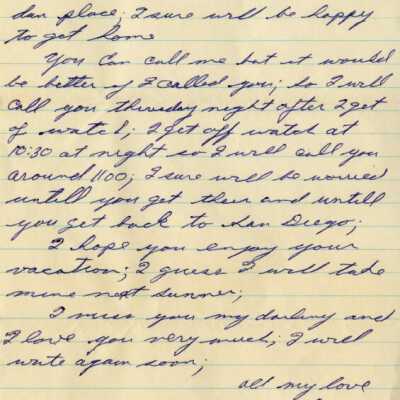 dan place; I sure will be happy
to get home
You can call me but it would
be better if I called you; so I will
call you thursday night after I get
of watch; I get off watch at
10:30 at night so I will call you
around 1100; I sure will be worried
untill you get their and untill
you get back to San Diego;
I hope you enjoy your
vacation; I guess I will take
mine next summer;
I miss you my darling and
I love you very much; I will
write again soon;
all my love